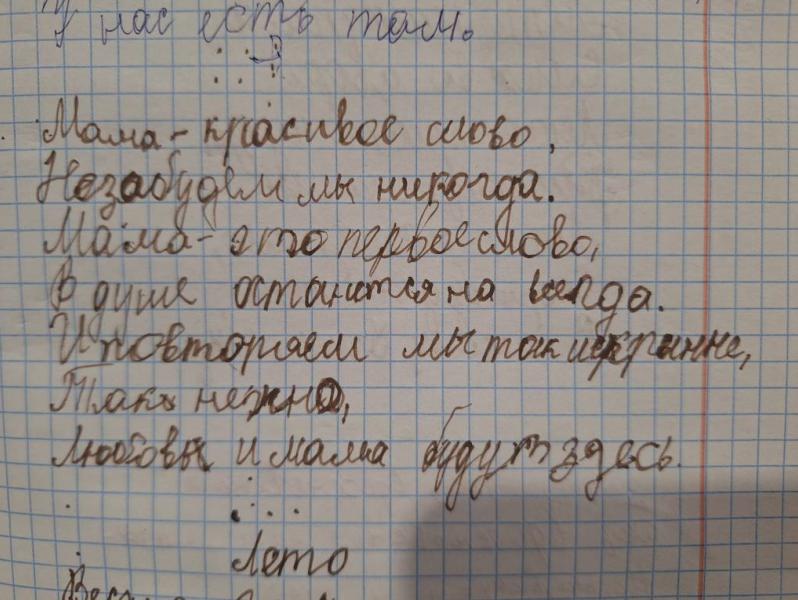 У нас есть там.
Мама - красивое слово,
Незабудем мы никогда.
Мама - это первое слово,
В душе останится на всегда.
И повторяем мы так искринне,
Так нежно,
Любовь и мама будут здесь.
Лето